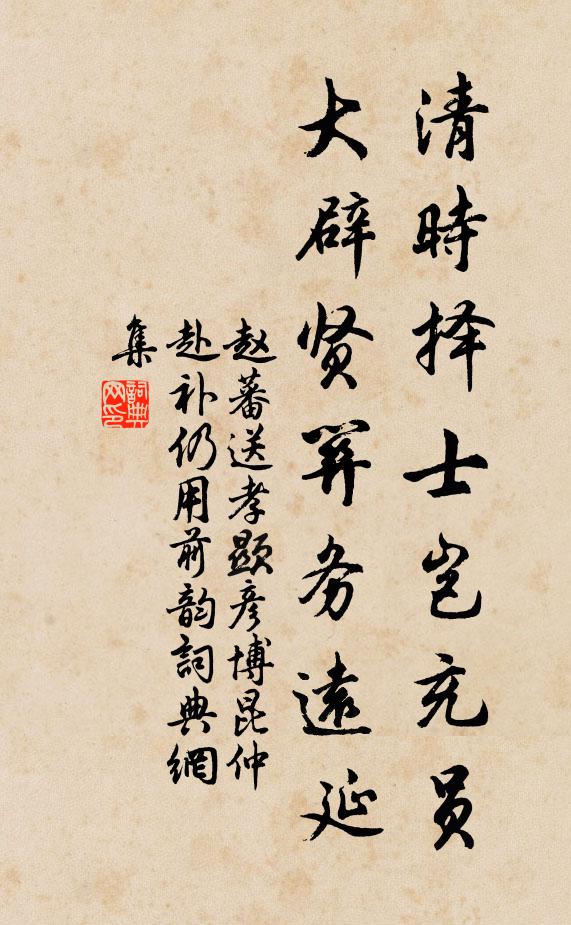 清時择士岂充员
大辟贤关务遠延
赵蕃送孝顯彦博昆仲
赴补仍用前韵詞典網
集
詞典
网印